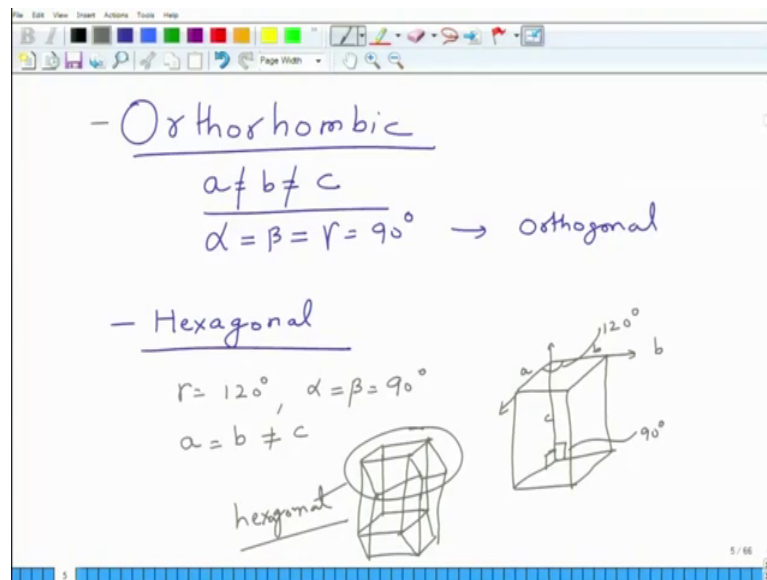 File Edit View Insert Actions Tools Help
B I
Page Width
- Orthorhombic
a ≠ b ≠ c
α = β = γ = 90° → Orthogonal
- Hexagonal
γ = 120°, α = β = 90°
a = b ≠ c
hexagonal
120°
a b b
c
90°
5 / 66
5